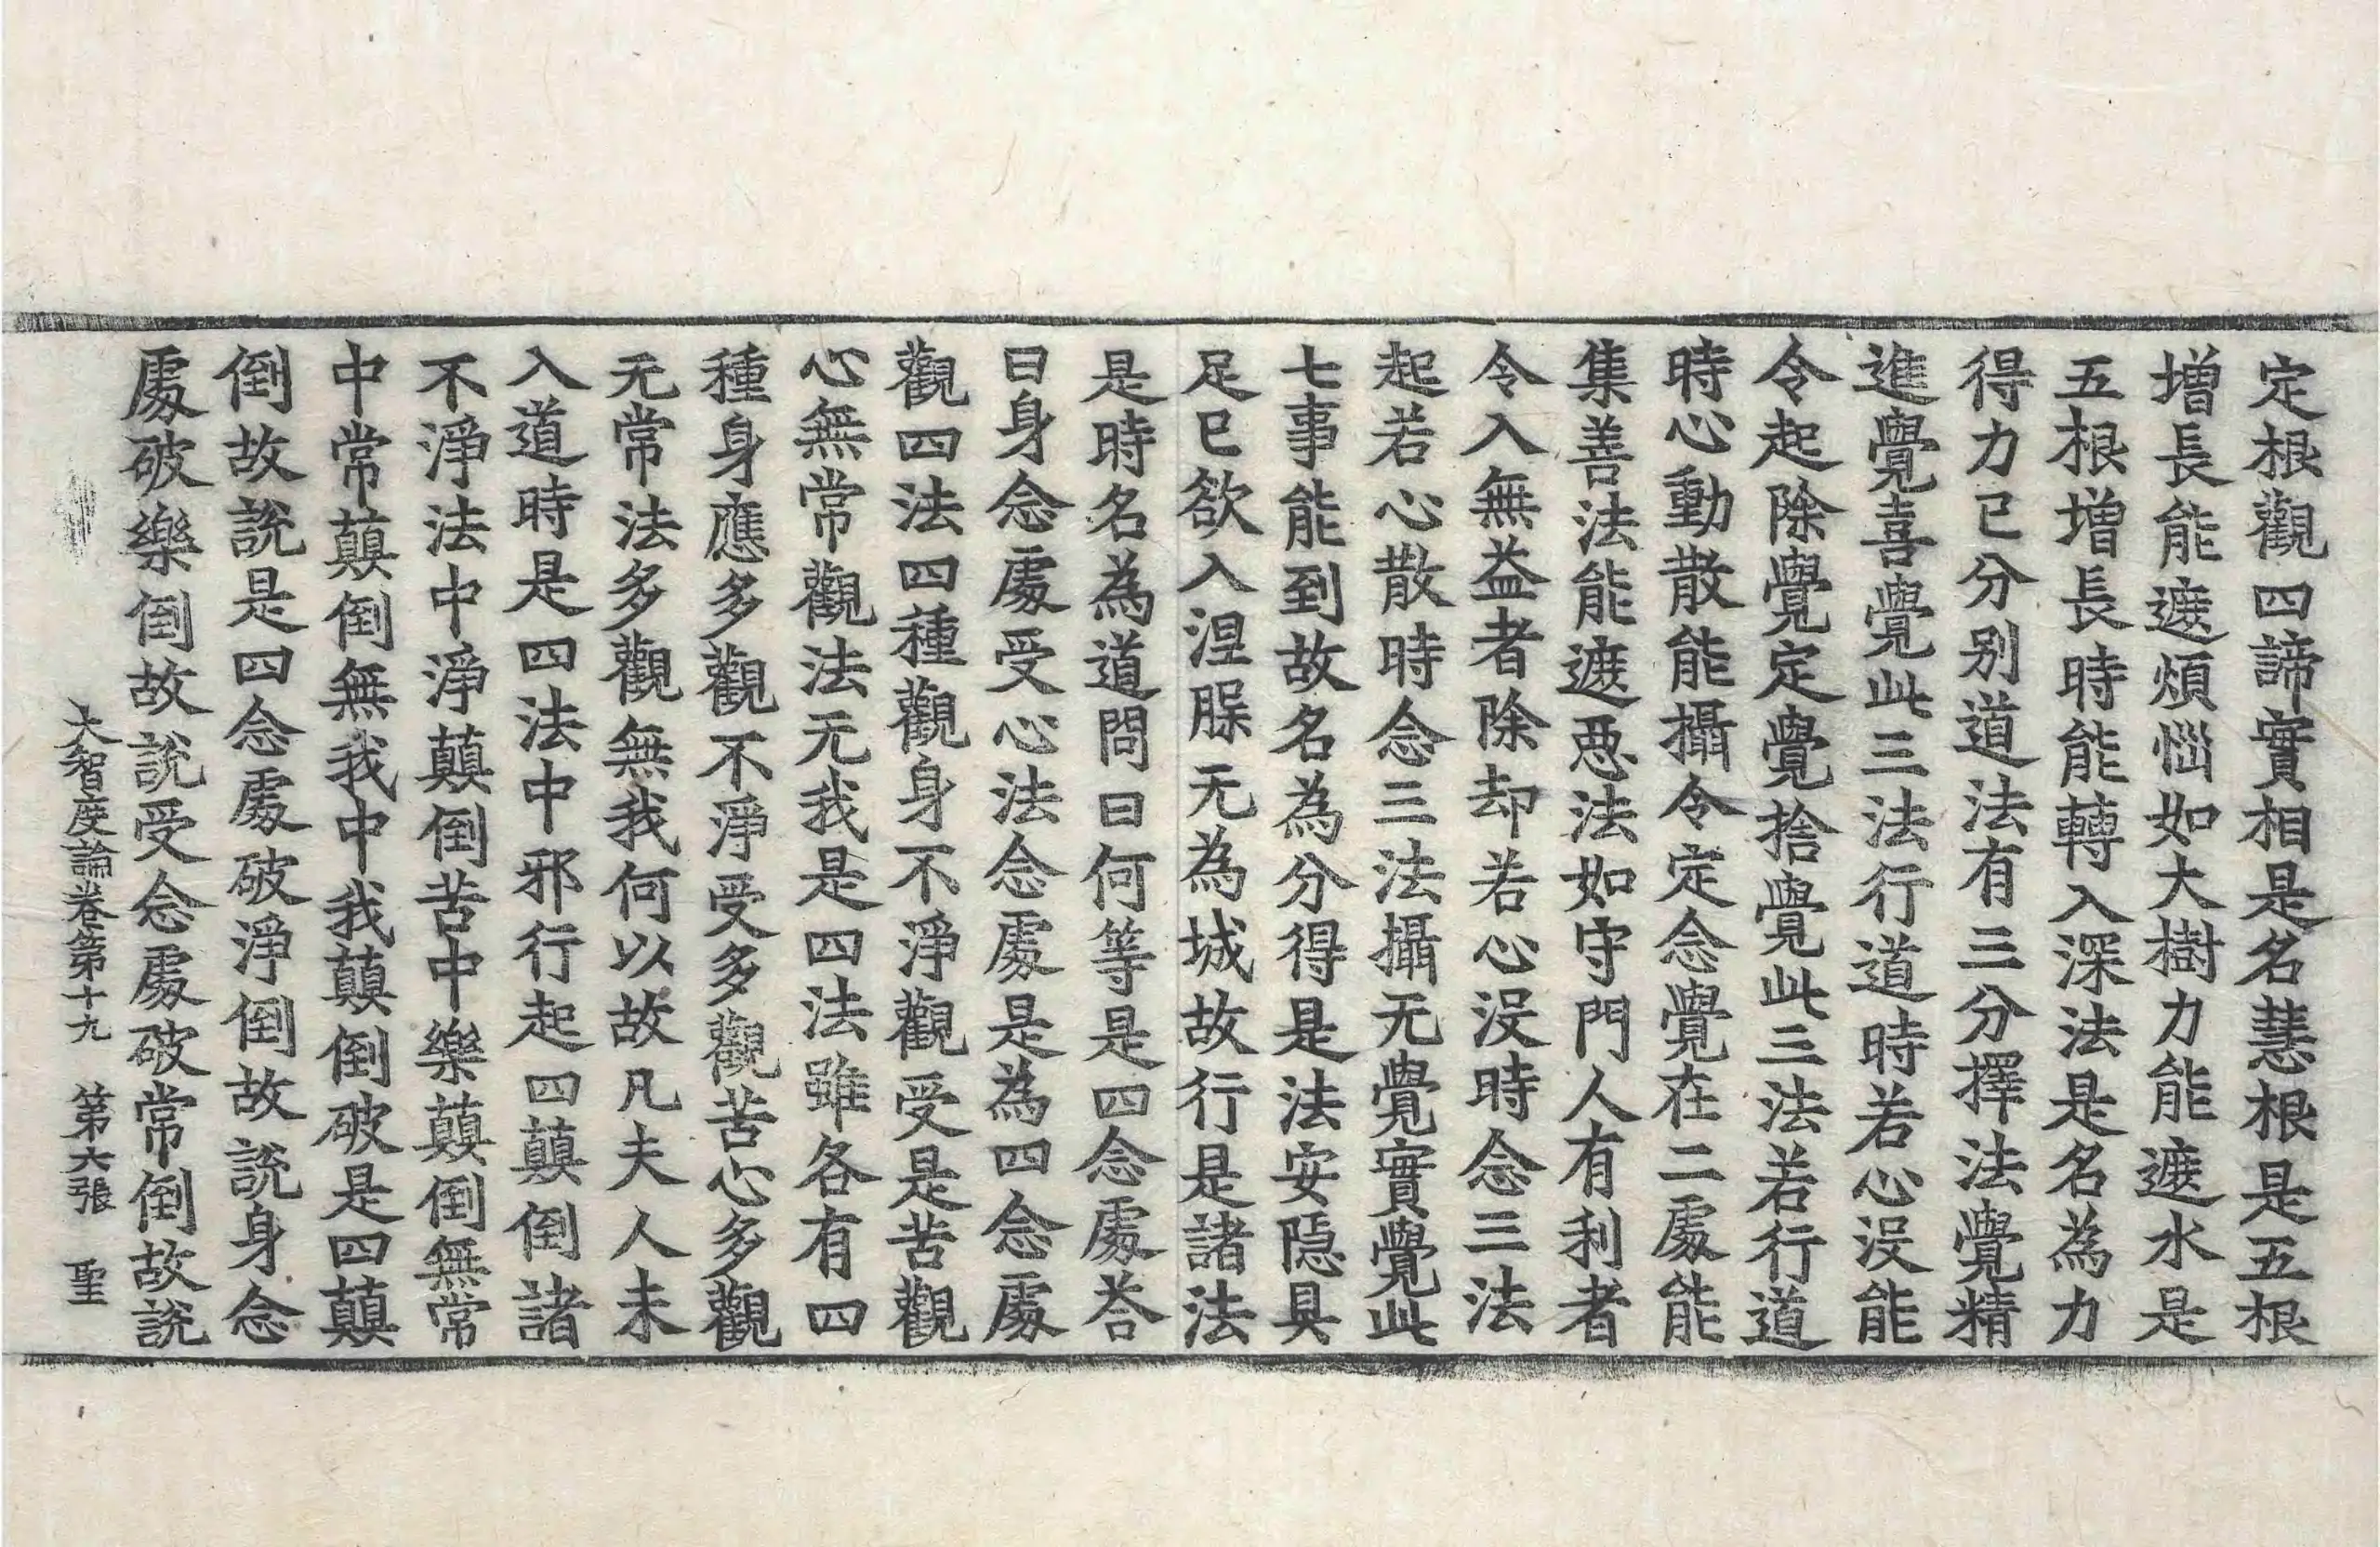 定根觀四諦實相是名慧根是五根
增長能遮煩惱如大樹力能遮水是
五根增長時能轉入深法是名為力
得力已分别道法有三分擇法覺精
進覺喜覺此三法行道時若心沒能
令起除覺定覺捨覺此三法若行道
時心動散能攝令定念覺在二處能
集善法能遮惡法如守門人有利者
令入無益者除却若心沒時念三法
起若心散時念三法攝无覺實覺此
七事能到故名為分得是法安隱具
足已欲入涅槃无為城故行是諸法
是時名為道問曰何等是四念處荅
曰身念處受心法念處是為四念處
觀四法四種觀身不淨觀受是苦觀
心無常觀法无我是四法雖各有四
種身應多觀不淨受多觀苦心多觀
无常法多觀無我何以故凡夫人未
入道時是四法中邪行起四顛倒諸
不淨法中淨顛倒苦中樂顛倒無常
中常顛倒無我中我顛倒破是四顛
倒故說是四念處破淨倒故說身念
處破樂倒故說受念處破常倒故說
大智度論卷第十九　第六張　聖